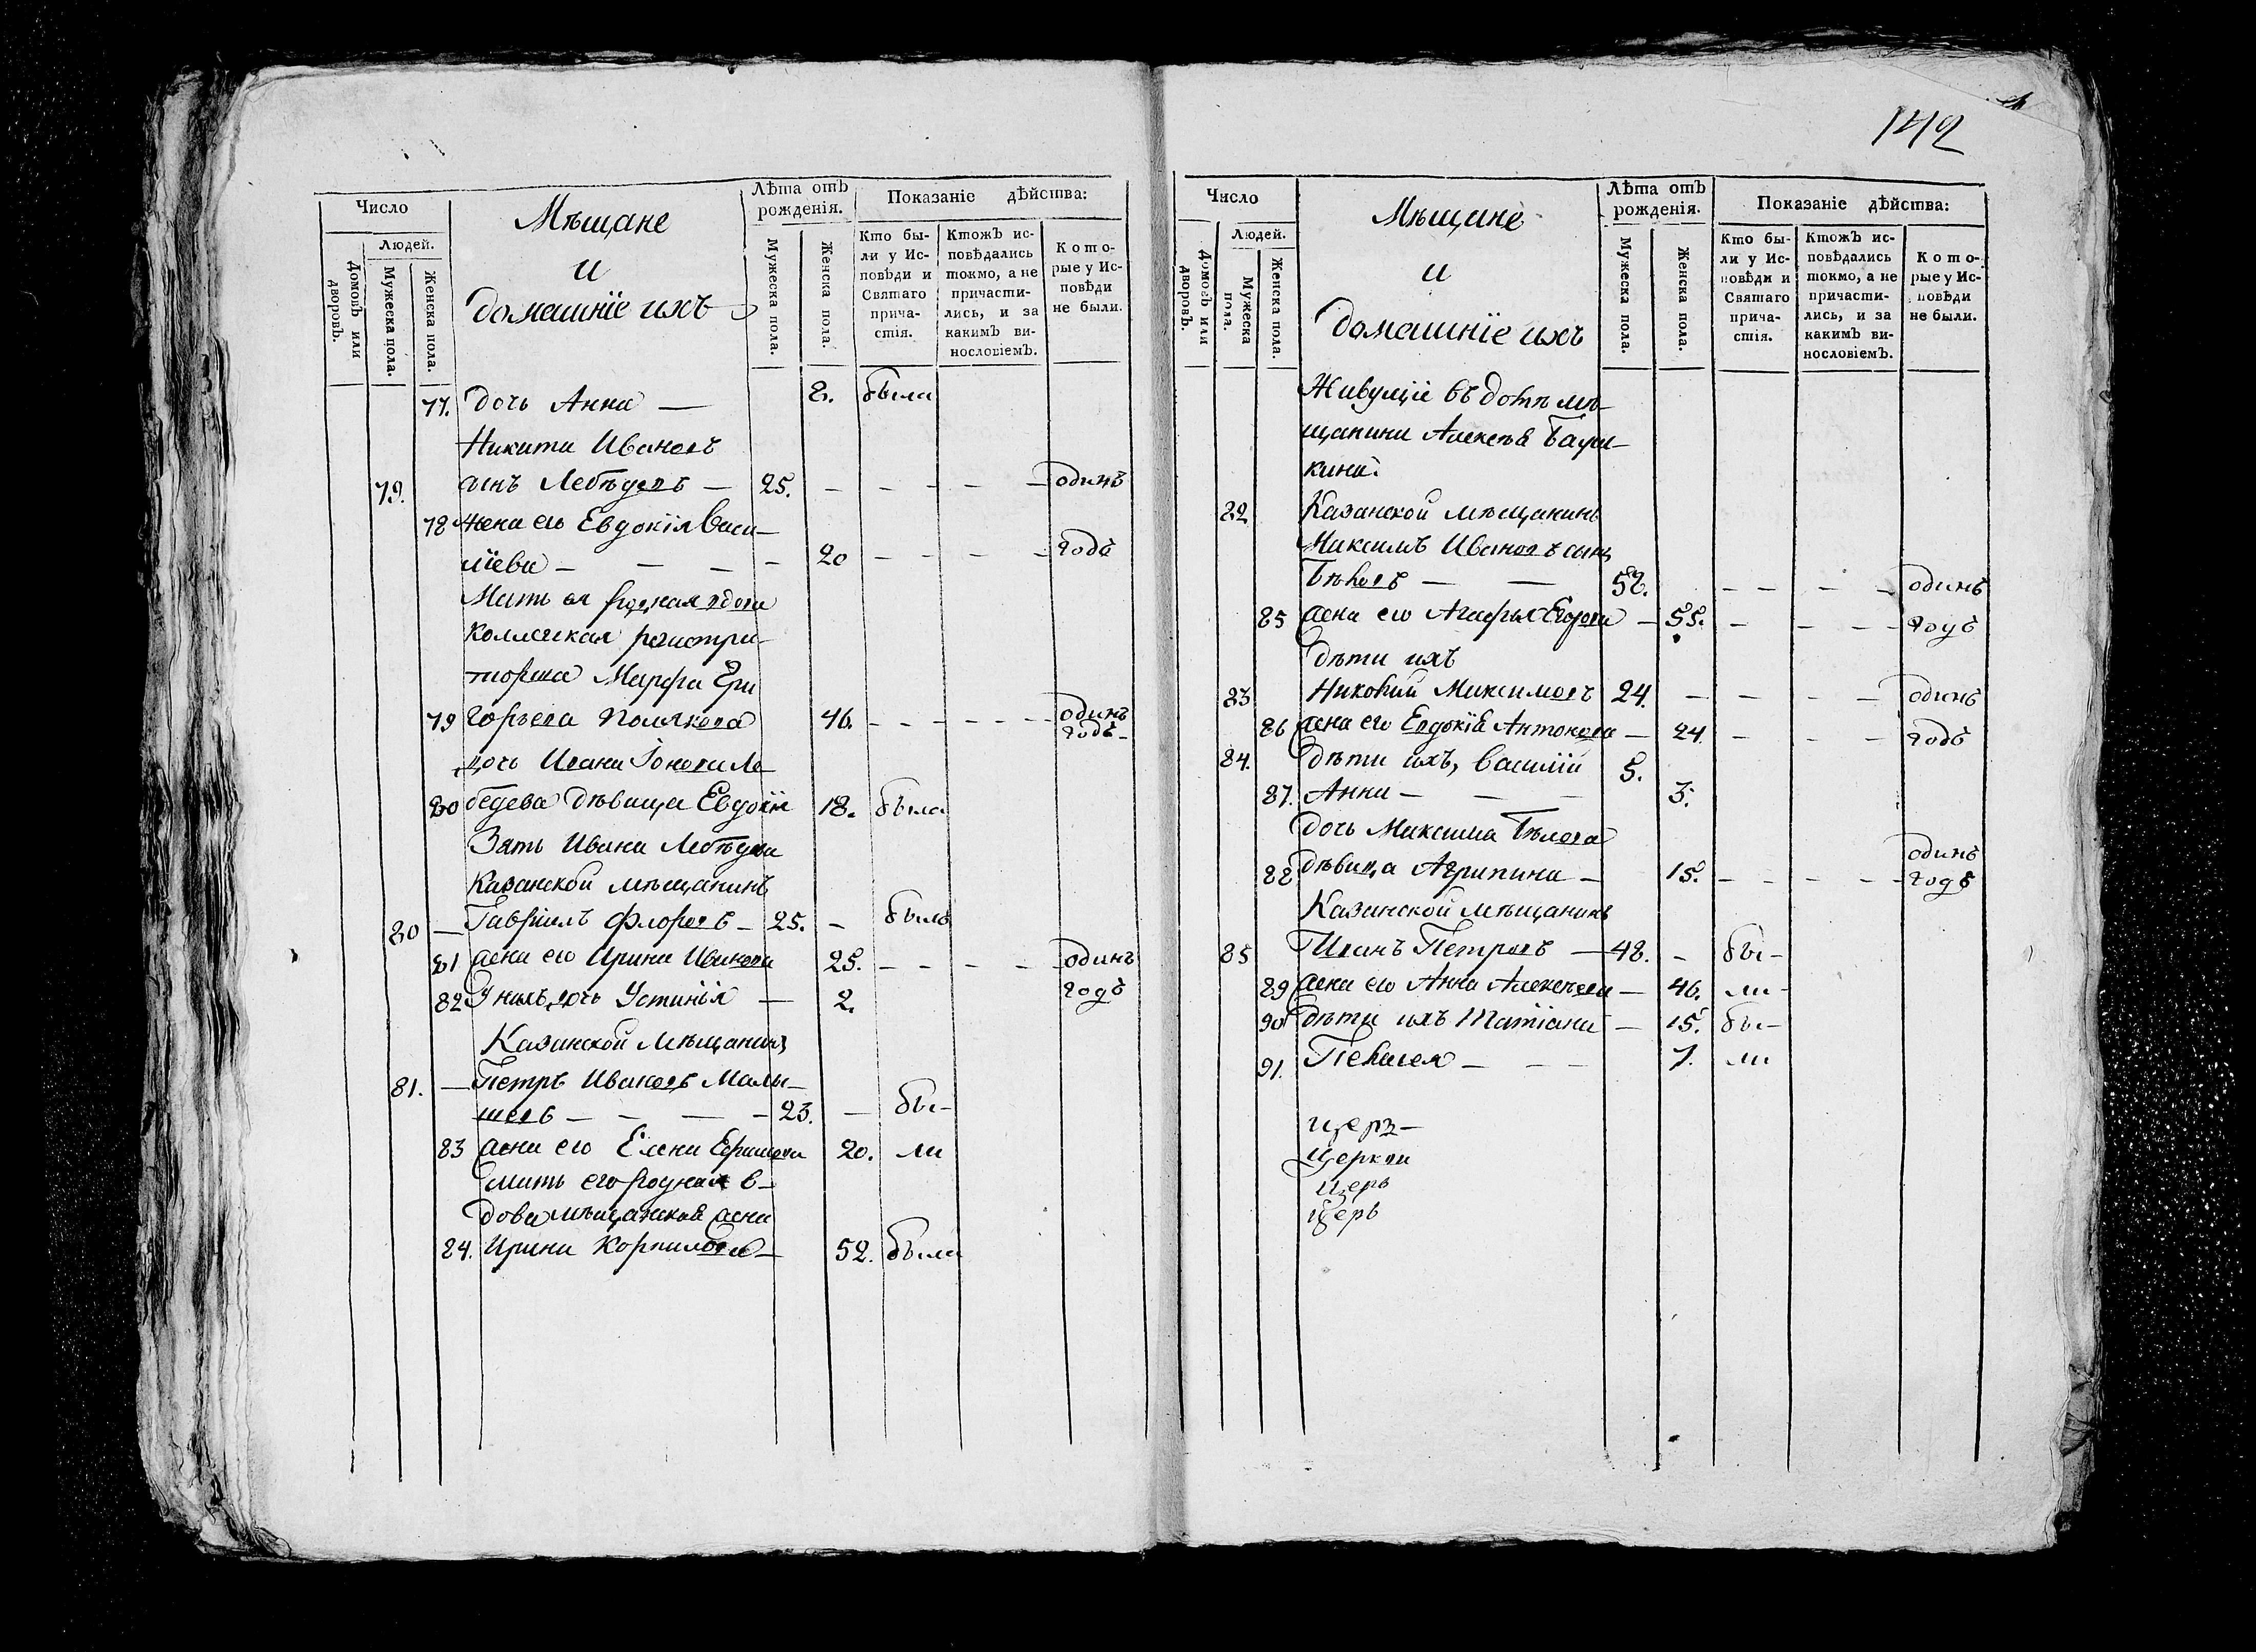 142
Число
Людей.
Домовъ или дворовъ.
Мужеска пола.
Женска пола.
Мѣщане
и
домашніе ихъ
Лѣта отъ рожденія.
Мужеска пола.
Женска пола.
Показаніе дѣйства:
Кто были у Исповѣди и Святаго причастія.
Ктожъ исповѣдались токмо, а не причастились, и за какимъ винословіемъ.
Которые у Исповѣди не были.
77. дочь Анна — 8. была
Никита Ивановъ
79. сынъ Лебѣдевъ — 25. — — — — — одинъ
78 жена его Евдокія Васи—
лїева — — — — 20 — — — — годъ
Мать ея родная вдова
Коллежская регистра—
торша Марфа Гри
79 горьева Полякова 46. — — — — — — одинъ
годъ —
дочь Ивана Іонова Ле
80 бедева дѣвица Евдокія 18. была
Зять Ивана Лебѣдева
Казанской мѣщанинъ
80 — Гавріилъ Флоровъ — 25. — былъ
81 жена его Ирина Иванова 25. — — — — — одинъ
82 У нихъ дочь Устинія — 2. годъ
Казанской Мѣщанинъ
81. — Петръ Ивановъ Малы—
шевъ — — — — 23. — бы—
83 жена его Елена Ефимова 20. ли
мать его родная в—
дова мѣщанская жена
84. Ирина Корнилова — 52. была
Число
Людей.
Домовъ или дворовъ.
Мужеска пола.
Женска пола.
Мѣщане
и
домашніе ихъ
Лѣта отъ рожденія.
Мужеска пола.
Женска пола.
Показаніе дѣйства:
Кто были у Исповѣди и Святаго причастія.
Ктожъ исповѣдались токмо, а не причастились, и за какимъ винословіемъ.
Которые у Исповѣди не были.
Живущіе въ домѣ мѣ—
щанина Алексѣя
кина:
82 Казанской мѣщанинъ
Максимъ Ивановъ сынъ
Бѣловъ — — 58. — — — — одинъ
85 жена его Агафья Егорова — 55. — — — — годъ
дѣти ихъ
83 Максимовъ 24. — — — — одинъ
86 жена его Евдокія Антонова — 24. — — — годъ
84. дѣти ихъ, Василій 5.
87. Анна — — — 3.
дочь Максима Бѣлова
одинъ
88 дѣвица Агрипина — 15. — — — — — годъ
Казанской мѣщанинъ
85 Иванъ Петровъ — 48. — бы—
89 жена его Анна Алексѣева — 46. ли —
90 дѣти ихъ Татіана — 15. бы—
91. Пелагея — — — 7. ли
церз—
Церкви
церь
церь